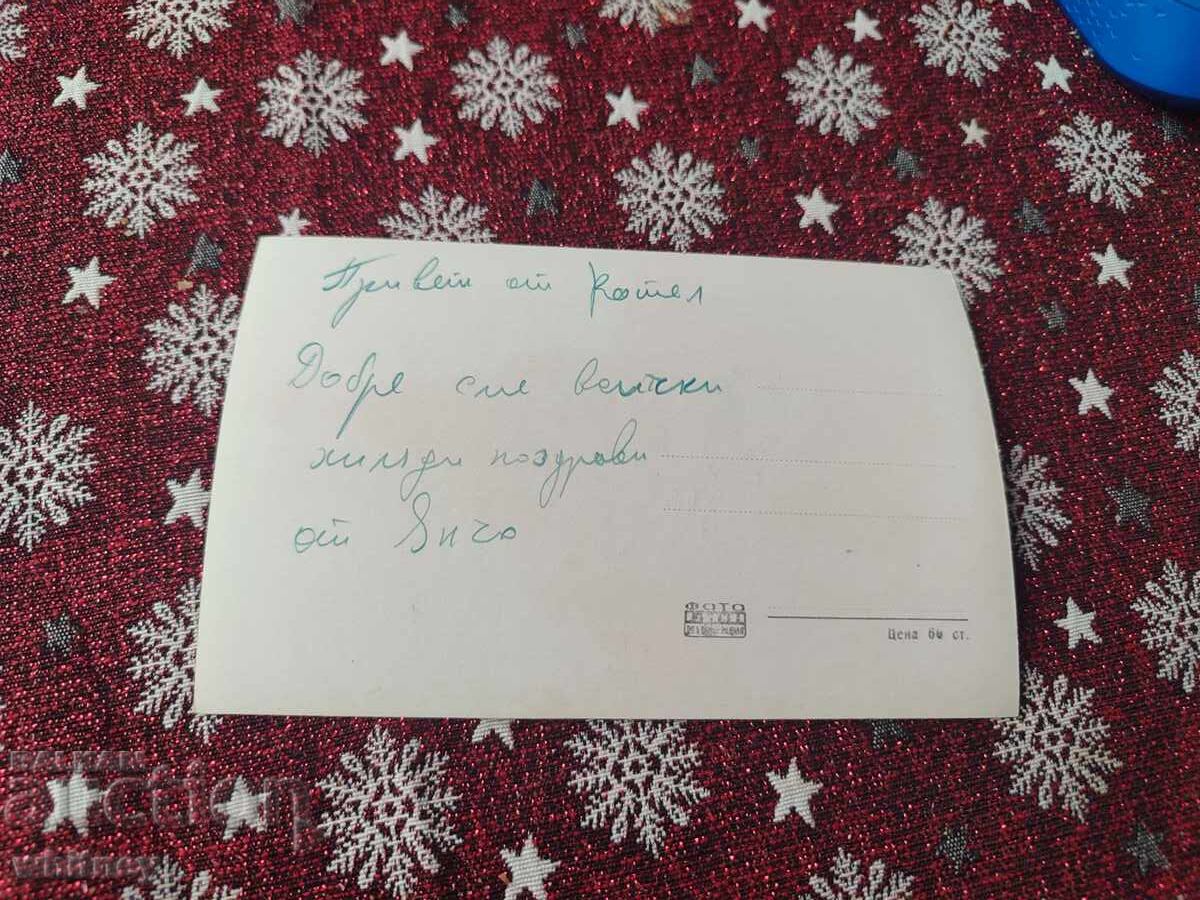 Привет от Котел
Добре сме всички
хиляди поздрави
от Янчо
ФОТО
Цена 60 ст.
BALKAN
auction
whitney